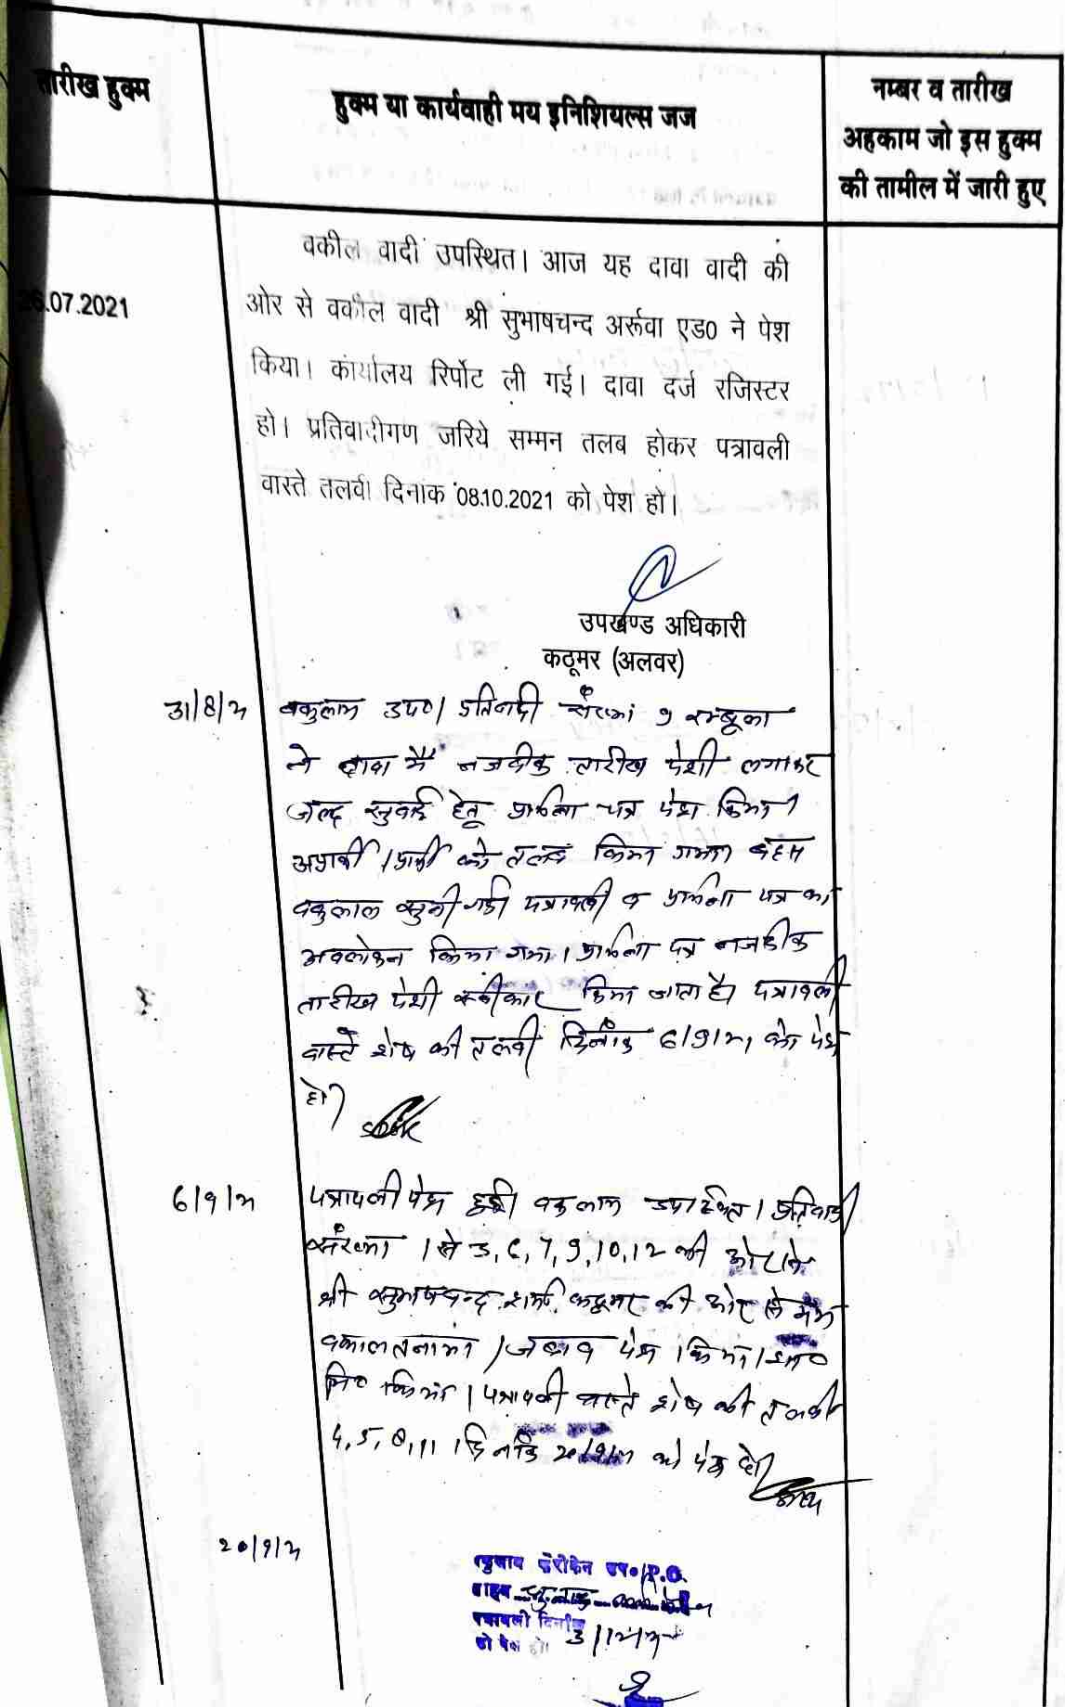 तारीख हुक्म
हुक्म या कार्यवाही मय इनिशियल्स जज
नम्बर व तारीख
अहकाम जो इस हुक्म
की तामील में जारी हुए
वकील वादी उपस्थित। आज यह दावा वादी की
.07.2021
ओर से वकील वादी श्री सुभाषचन्द अरूवा एड0 ने पेश
किया। कार्यालय रिर्पोट ली गई। दावा दर्ज रजिस्टर
हो। प्रतिवादीगण जरिये सम्मन तलब होकर पत्रावली
वास्ते तलवी दिनाक 08.10.2021 को पेश हो।
उपखण्ड अधिकारी
कठूमर (अलवर)
31/8/21 वकुलाय उप०। प्रतिवादी संख्या 9
ने दावा में नजदीक तारीख पेशी लगाकर
जल्द सुनवाई हेतू प्रार्थना पत्र पेश किया।
अप्रार्थी / प्रार्थी को तलब किया गया। बहस
वकुलाल सुनी गई। पत्रावली व प्रार्थना पत्र का
अवलोकन किया गया। प्रार्थना पत्र नजदीक
तारीख पेशी स्वीकार किया जाता है। पत्रावली
वास्ते शेष की तलवी दिनांक 6/9/21 को पेश
हो।
6/9/21 पत्रावली पेश हुई। वकुलाय उपस्थित। प्रतिवादी
संख्या 1 से 3, 6, 7, 9, 10, 12 की ओर से
श्री सुभाषचन्द शर्मा, कठूमर की ओर से मय
वकालतनामा / जवाब पेश किया।
किया। पत्रावली वास्ते शेष की तलवी
4, 5, 8, 11 दिनांक 20/9/21 को पेश हो।
20/9/21
उप०/P.O.
पत्रावली दिनांक 3/12/21
को पेश हो।